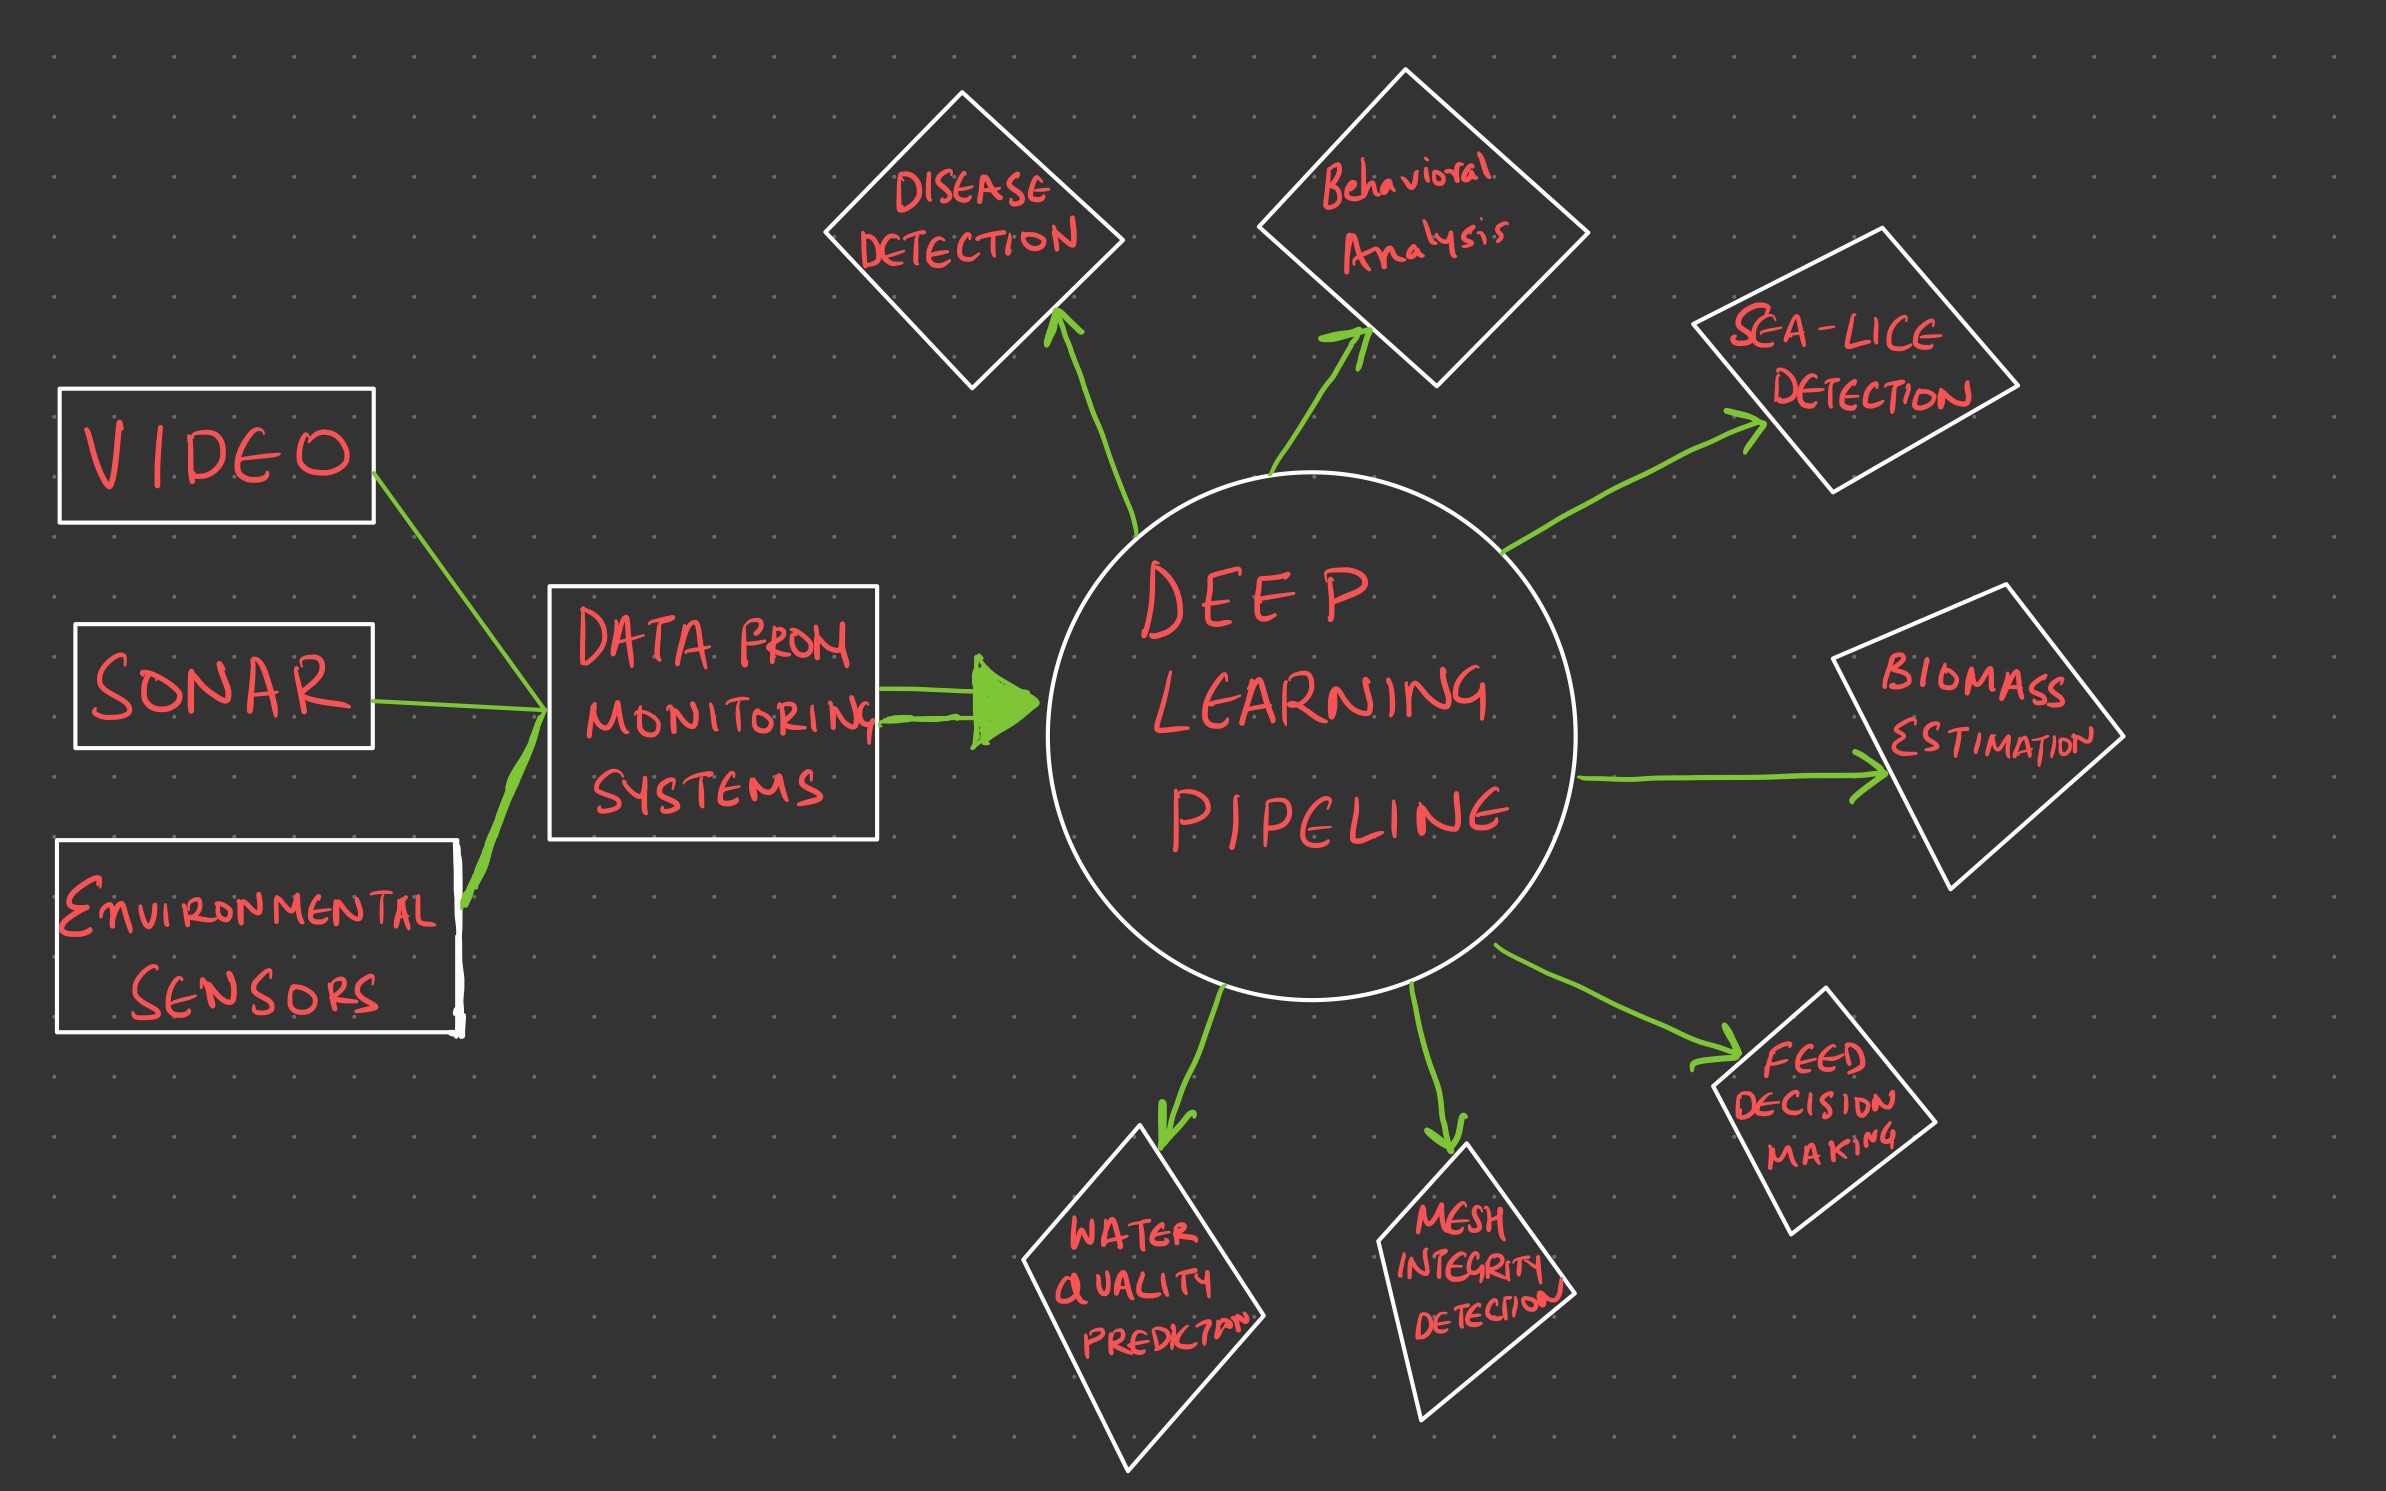 VIDEO
SONAR
ENVIRONMENTAL
SENSORS
DATA FROM
MONITORING
SYSTEMS
DEEP
LEARNING
PIPELINE
DISEASE
DETECTION
Behavioral
Analysis
SEA-LICE
DETECTION
BIOMASS
ESTIMATION
FEED
DECISION
MAKING
MESH
INTEGRITY
DETECTION
WATER
QUALITY
PREDICTION